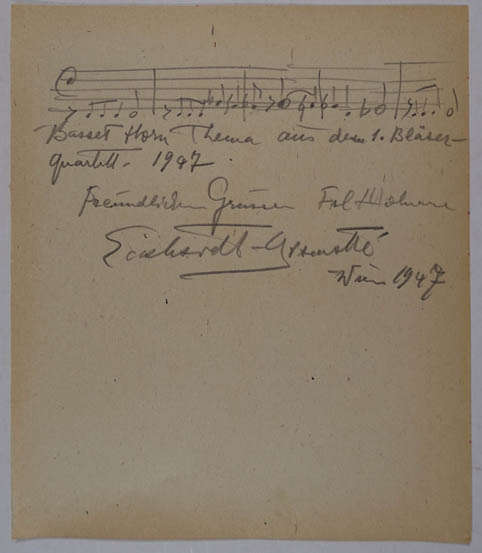 Basset Horn Thema aus dem 1. Bläser-
quartett - 1947.
Freundlichen Grüssen Frl
Eckhardt-Gramatté
Wien 1947